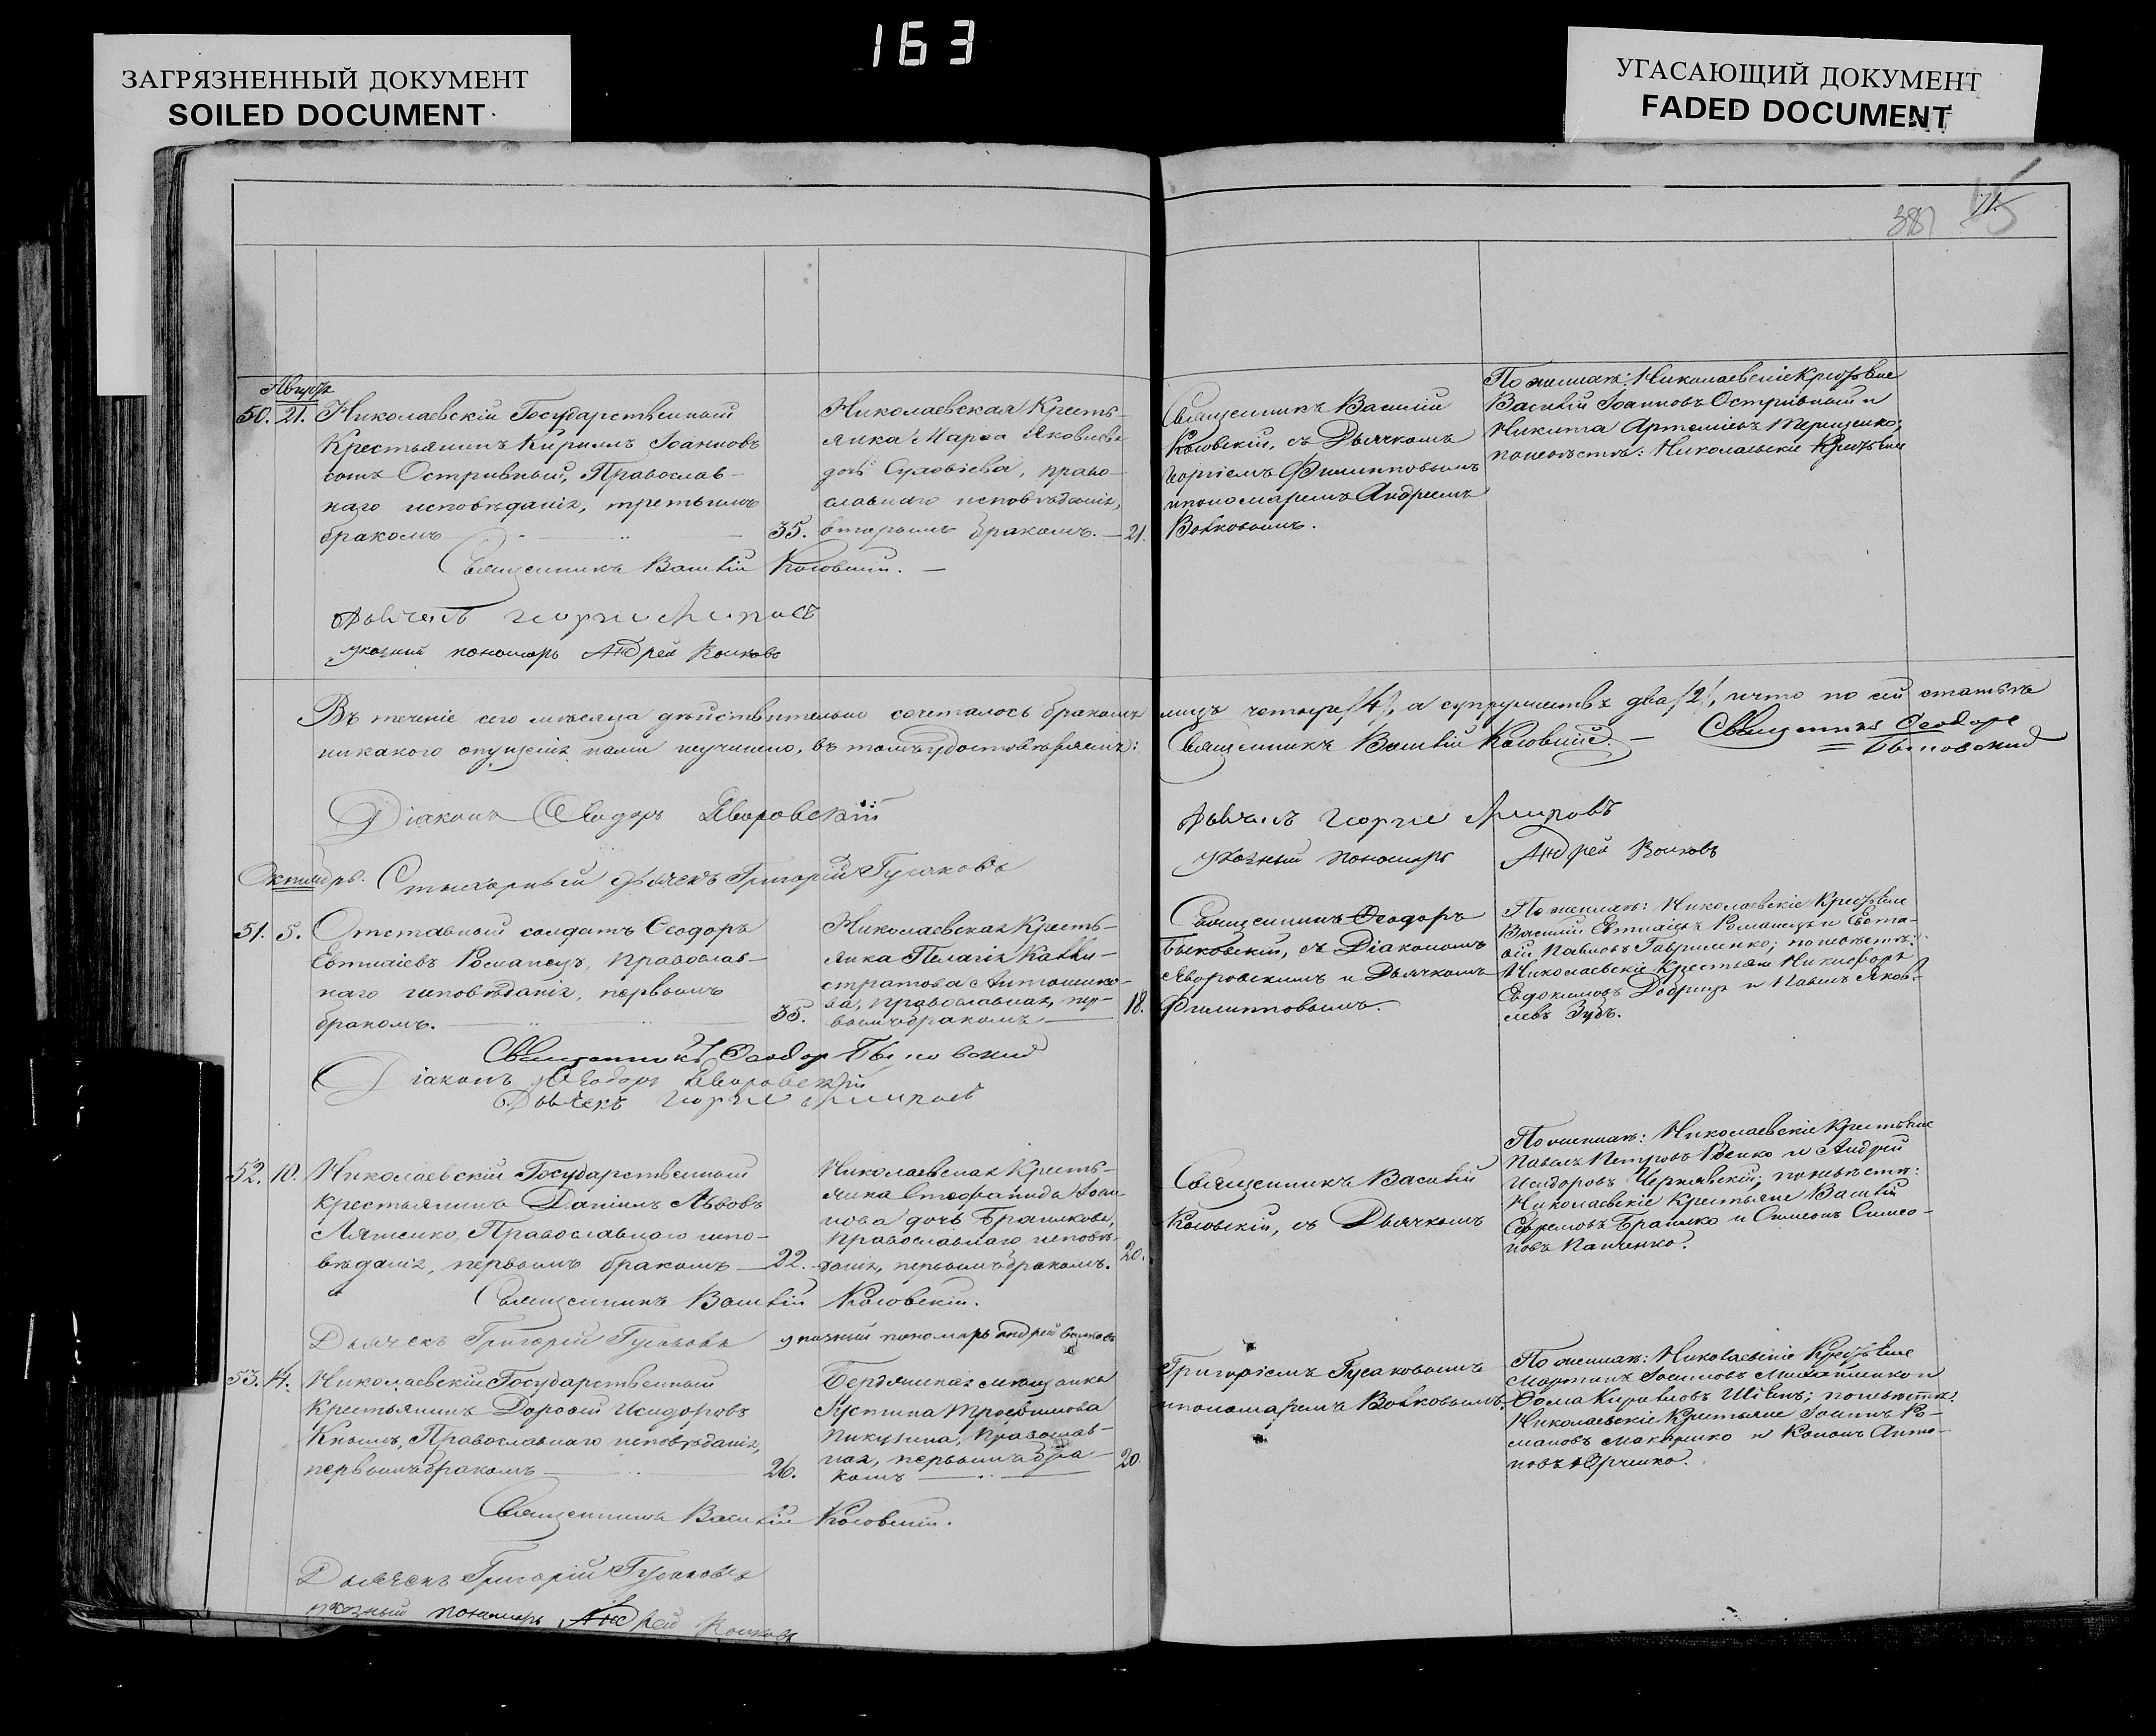 163
ЗАГРЯЗНЕННЫЙ ДОКУМЕНТ
SOILED DOCUMENT
УГАСАЮЩИЙ ДОКУМЕНТ
FADED DOCUMENT
381
Августъ
50. 21. Николаевскій Государственный
крестьянинъ Кириллъ Іоанновъ
сынъ Остривный, Православ-
наго исповѣданія, третьимъ
бракомъ 35.
Николаевская Кресть-
янка Марѳа Яковлева
дочь Суховіева, право-
славнаго исповѣданія,
вторымъ бракомъ. 21.
Священникъ Василій
Косовскій, съ Дьячкомъ
Георгіемъ Филипповымъ
и пономаремъ Андреемъ
Волковымъ.
По женихѣ: Николаевскіе Крестьяне
Василій Іоанновъ Остривный и
Никита Артеміевъ Терещенко;
по невѣстѣ: Николаевскіе Крестьяне
Священникъ Василій Косовскій.
Дьячекъ Георгій
указный пономарь Андрей Волковъ
Въ теченіе сего мѣсяца дѣйствительно сочеталось бракомъ лицъ четыре /4/, а супружествъ два /2/, и что по сей статьѣ
никакого опущенія нами неучинено, въ томъ удостовѣряемъ: Священникъ Василій Косовскій. Священникъ Ѳеодоръ
Быковскій
Діаконъ Ѳеодоръ Яворовскій
Дьячекъ Георгій
указный пономарь Андрей Волковъ
Октябрь. дьячекъ Григорій Гусаковъ
51. 5. Отставной солдатъ Ѳеодоръ
Евтихіевъ Романецъ, Православ-
наго исповѣданія, первымъ
бракомъ. 35.
Николаевская Кресть-
янка Пелагія Калли-
стратова Антоненко-
ва, православная, пер-
вымъ бракомъ 18.
Священникъ Ѳеодоръ
Быковскій, съ Діакономъ
Яворовскимъ и Дьячкомъ
Филипповымъ.
По женихѣ: Николаевскіе Крестьяне
Василій Евтихіевъ Романецъ и Евста-
ѳій Павловъ Гавриленко; по невѣстѣ:
Николаевскіе Крестьяне Никифоръ
Евдокимовъ Добрица и Павелъ Яков-
левъ Зубъ.
Священникъ Ѳеодоръ Быковскій
Діаконъ Ѳеодоръ Яворовскій
Дьячекъ Георгій
52. 10. Николаевскій Государственный
крестьянинъ Даніилъ Львовъ
Ляшенко, Православнаго испо-
вѣданія, первымъ бракомъ 22.
Николаевская Кресть-
янка Стефанида Іоан-
нова дочь Брашкова,
православнаго исповѣ-
данія, первымъ бракомъ. 20.
Священникъ Василій
Косовскій, съ Дьячкомъ
По женихѣ: Николаевскіе Крестьяне
Павелъ Петровъ и Андрей
Исидоровъ Чернявскій; по невѣстѣ:
Николаевскіе Крестьяне Василій
Ефремовъ Брашко и Симеонъ Симео-
новъ Панченко.
Священникъ Василій Косовскій.
Дьячекъ Григорій Гусаковъ указный пономарь Андрей Волковъ
53. 14. Николаевскій Государственный
Крестьянинъ Дороѳей Исидоровъ
Кнышъ, Православнаго исповѣданія,
первымъ бракомъ 26.
Бердянская мѣщанка
Іустина Трофимова
Пикузина, Православ-
ная, первымъ бра-
комъ 20.
Григоріемъ Гусаковымъ
и пономаремъ Волковымъ.
По женихѣ: Николаевскіе Крестьяне
Мартинъ Михайленко и
Ѳома Кирилловъ; по невѣстѣ:
Николаевскіе Крестьяне Іоаннъ Ро-
мановъ Макаренко и Кононъ Анто-
новъ Юрченко.
Священникъ Василій Косовскій.
Дьячекъ Григорій Гусаковъ
указный пономарь Андрей Волковъ